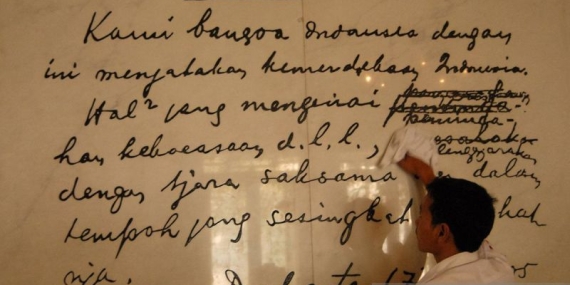 Kami bangsa Indonesia dengan
ini menjatakan kemerdekaan Indonesia.
Hal² jang mengenai
peminda-
han kekoeasaan d.l.l.,
diselenggarakan
dengan tjara saksama dalam
tempoh jang sesingkat
nja.
Djakarta 17
05